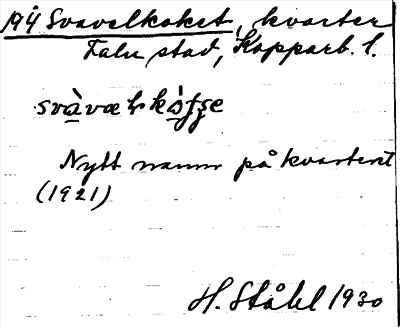 Svavelkoket, kvarter
Falu stad, Kopparb. l.
Nytt namn på kvarteret
(1921)
H. Ståhl 1930